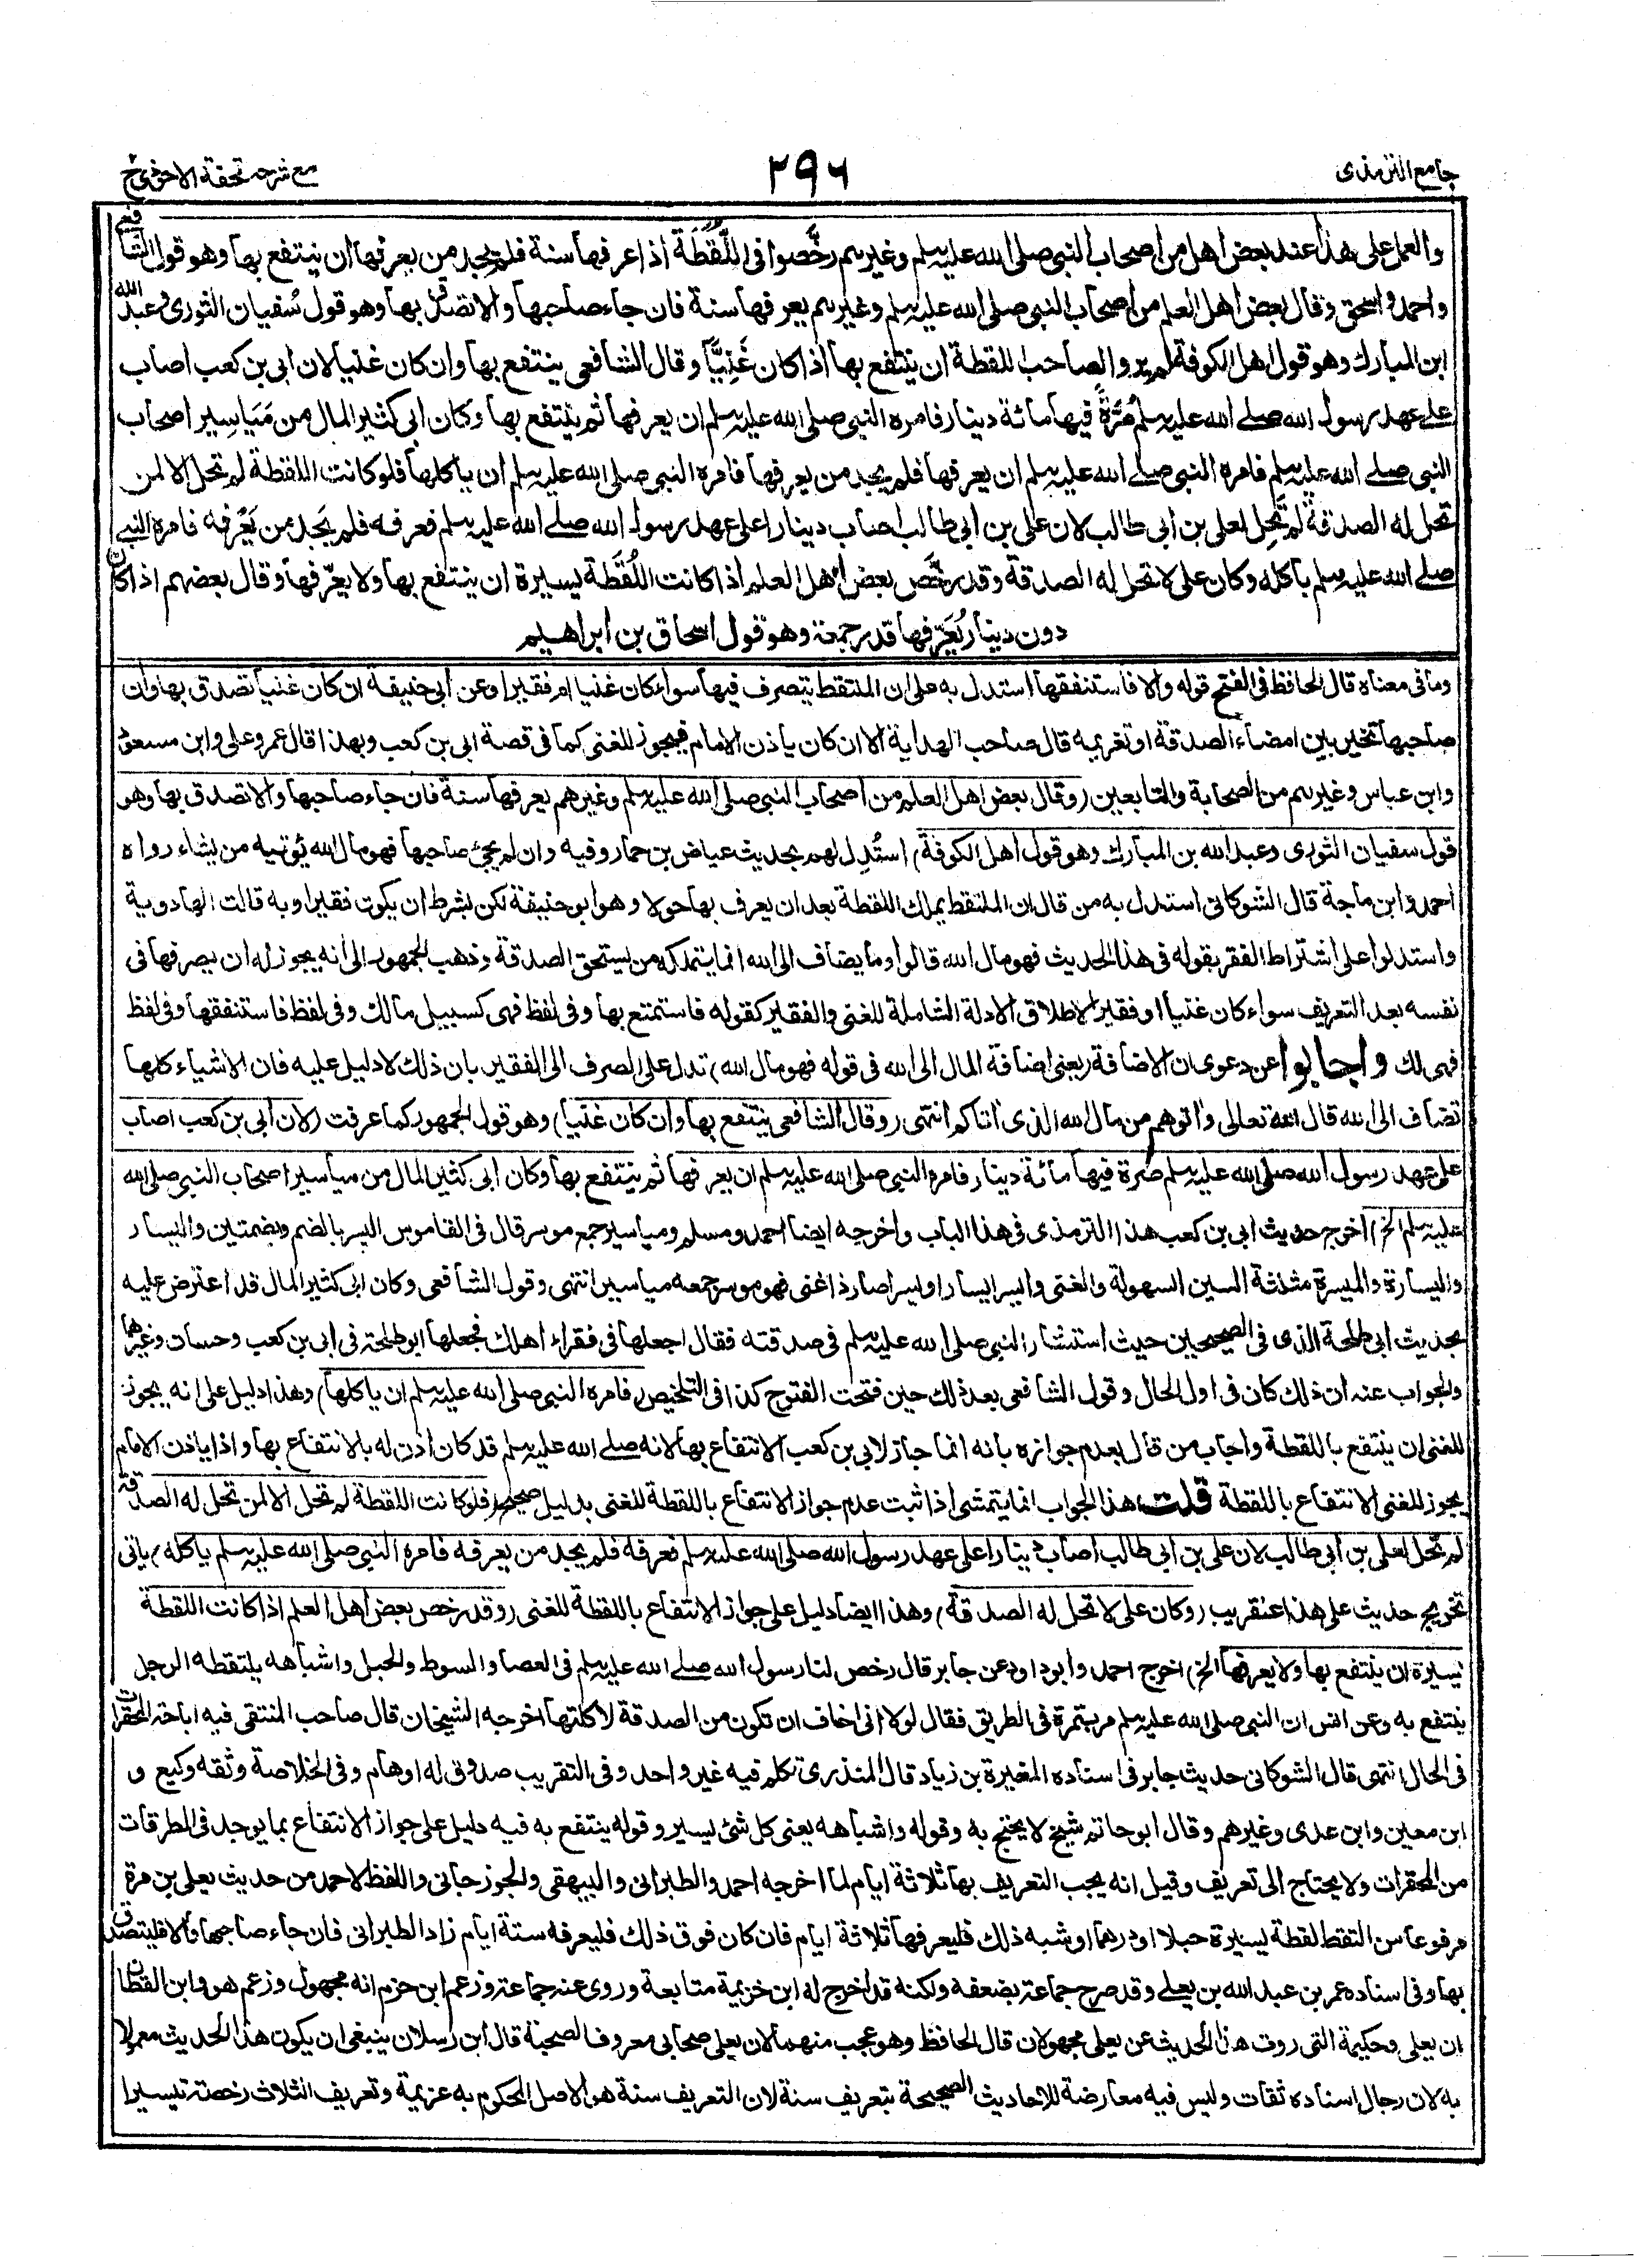 جامع الترمذی
۲۹۶
مع شرحہ تحفة الاحوذی ج
والعمل علی هذا عند بعض اهل من اصحاب النبی صلی الله علیہ وسلم وغیرہم رخَّصوا فی اللُّقَطَة اذا عرفها سنة فلم یجد من یعرفها ان ینتفع بها وهو قول الشافعی
واحمد واسحق وقال بعض اهل العلم من اصحاب النبی صلی الله علیہ وسلم وغیرہم یعرفها سنة فان جاء صاحبها والا تصدق بها وهو قول سُفیان الثوری وعبد الله
ابن المبارک وهو قول اهل الکوفة لم یروا لصاحب اللقطة ان ینتفع بها اذا کان غَنِیًّا وقال الشافعی ینتفع بها وان کان غنیا لان ابی بن کعب اصاب
علے عهد رسول الله صلے الله علیہ وسلم صُرَّةً فیها مائة دینار فامره النبی صلی الله علیہ وسلم ان یعرفها ثم ینتفع بها وکان ابی کثیر المال من مَیَاسِیر اصحاب
النبی صلے الله علیہ وسلم فامره النبی صلے الله علیہ وسلم ان یعرفها فلم یجد من یعرفها فامره النبی صلی الله علیہ وسلم ان یاکلها فلو کانت اللقطة لم تحل الا لمن
تحل له الصدقة لم تَحِل لعلی بن ابی طالب لان علی بن ابی طالب اصاب دینارا علی عهد رسول الله صلے الله علیہ وسلم فعرفه فلم یَجد من یَعْرفه فامره النبی
صلے الله علیہ وسلم باکله وکان علی لا تحل له الصدقة وقد رخَّص بعض اهل العلم اذا کانت اللُّقَطَة یسیرة ان ینتفع بها ولا یعرّفها وقال بعضهم اذا کان
دون دینار یُعَرِّفها قدر جمعة وهو قول اسحاق بن ابراهیم
وما فی معناه قال الحافظ فی الفتح قوله والا فاستنفقها استدل به علی ان الملتقط یتصرف فیها سواء کان غنیا ام فقیرا وعن ابی حنیفة ان کان غنیا تصدق بها وان
صاحبها تخیر بین امضاء الصدقة او تغریمه قال صاحب الهدایة الا ان کان یاذن الامام فیجوز للغنی کما فی قصة ابی بن کعب وبهذا قال عمر وعلی وابن مسعود
وابن عباس وغیرہم من الصحابة والتابعین (وقال بعض اهل العلم من اصحاب النبی صلی الله علیہ وسلم وغیرهم یعرفها سنة فان جاء صاحبها والا تصدق بها وهو
قول سفیان الثوری وعبد الله بن المبارک وهو قول اهل الکوفة) استُدِل لهم بحدیث عیاض بن حمار وفیه وان لم یجئ صاحبها فهو مال الله یؤتیه من یشاء رواه
احمد وابن ماجة قال الشوکانی استدل به من قال ان الملتقط یملک اللقطة بعد ان یعرف بها حولا وهو ابو حنیفة لکن بشرط ان یکون فقیرا وبه قالت الهادویة
واستدلوا علی اشتراط الفقر بقوله فی هذا الحدیث فهو مال الله قالوا وما یضاف الی الله انما یتملکه من یستحق الصدقة وذهب الجمهور الی انه یجوز له ان یصرفها فی
نفسه بعد التعریف سواء کان غنیا او فقیرا لاطلاق الادلة الشاملة للغنی والفقیر کقوله فاستمتع بها وفی لفظ فهی کسبیل مالک وفی لفظ فاستنفقها وفی لفظ
فهی لک واجابوا عن دعوی ان الاضافة (یعنی اضافة المال الی الله فی قوله فهو مال الله) تدل علی الصرف الی الفقیر بان ذلک لا دلیل علیه فان الاشیاء کلها
تضاف الی الله قال الله تعالی واٰتوهم من مال الله الذی اٰتاکم انتهی (وقال الشافعی ینتفع بها وان کان غنیا) وهو قول الجمهور کما عرفت (لان ابی بن کعب اصاب
علی عهد رسول الله صلی الله علیہ وسلم صُرة فیها مائة دینار فامره النبی صلی الله علیہ وسلم ان یعرفها ثم ینتفع بها وکان ابی کثیر المال من میاسیر اصحاب النبی صلی الله
علیہ وسلم الخ) اخرج حدیث ابی بن کعب هذا الترمذی فی هذا الباب واخرجه ایضا احمد ومسلم ومیاسیر جمع موسر قال فی القاموس الیسر بالضم وبضمتین والیسار
والیسارة والمیسرة مثلثة السین السهولة والغنی وایسر ایسارا ویسرا صار ذا غنی فهو موسر جمعه میاسیر انتهی وقول الشافعی وکان ابی کثیر المال قد اعترض علیه
بحدیث ابی طلحة الذی فی الصحیحین حیث استشار النبی صلی الله علیہ وسلم فی صدقته فقال اجعلها فی فقراء اهلک فجعلها ابو طلحة فی ابی بن کعب وحسان وغیرهما
والجواب عنه ان ذلک کان فی اول الحال وقول الشافعی بعد ذلک حین فتحت الفتوح کذا فی التلخیص (فامره النبی صلی الله علیہ وسلم ان یاکلها) وهذا دلیل علی انه یجوز
للغنی ان ینتفع باللقطة واجاب من قال بعدم جوازه بانه انما جاز لابی بن کعب الانتفاع بها لانه صلے الله علیہ وسلم قد کان اذن له بالانتفاع بها واذا یاذن الامام
یجوز للغنی الانتفاع باللقطة قلت هذا الجواب انما یتمشی اذا ثبت عدم جواز الانتفاع باللقطة للغنی بدلیل صحیح (فلو کانت اللقطة لم تحل الا لمن تحل له الصدقة
لم تحل لعلی بن ابی طالب لان علی بن ابی طالب اصاب دینارا علی عهد رسول الله صلی الله علیہ وسلم فعرفه فلم یجد من یعرفه فامره النبی صلی الله علیہ وسلم یاکله) یاتی
تخریج حدیث علی هذا عنقریب (وکان علی لا تحل له الصدقة) وهذا ایضا دلیل علی جواز الانتفاع باللقطة للغنی (وقد رخص بعض اهل العلم اذا کانت اللقطة
یسیرة ان ینتفع بها ولا یعرفها الخ) اخرج احمد وابو داود عن جابر قال رخص لنا رسول الله صلے الله علیہ وسلم فی العصا والسوط والحبل واشباهه یلتقطه الرجل
ینتفع به وعن انس ان النبی صلی الله علیہ وسلم مر بتمرة فی الطریق فقال لولا انی اخاف ان تکون من الصدقة لاکلتها اخرجه الشیخان قال صاحب المنتقی فیه اباحة المحقرات
فی الحال انتهی قال الشوکانی حدیث جابر فی اسناده المغیرة بن زیاد قال المنذری تکلم فیه غیر واحد وفی التقریب صدوق له اوهام وفی الخلاصة وثقه وکیع و
ابن معین وابن عدی وغیرهم وقال ابو حاتم شیخ لا یحتج به وقوله واشباهه یعنی کل شئ یسیر وقوله ینتفع به فیه دلیل علی جواز الانتفاع بما یوجد فی الطرقات
من المحقرات ولا یحتاج الی تعریف وقیل انه یجب التعریف بها ثلاثة ایام لما اخرجه احمد والطبرانی والبیهقی والجوزجانی واللفظ لاحمد من حدیث یعلی بن مرة
مرفوعا من التقط لقطة یسیرة حبلا او درهما او شبه ذلک فلیعرفها ثلاثة ایام فان کان فوق ذلک فلیعرفه ستة ایام زاد الطبرانی فان جاء صاحبها والا فلیتصدق
بها وفی اسناده عمر بن عبد الله بن یعلے وقد صرح جماعة بضعفه ولکنه قد اخرج له ابن خزیمة متابعة وروی عنه جماعة وزعم ابن حزم انه مجهول وزعم هو وابن القطان
ان یعلی وحکیمة التی روت هذا الحدیث عن یعلی مجهولان قال الحافظ وهو عجب منهما لان یعلی صحابی معروف الصحبة قال ابن رسلان ینبغی ان یکون هذا الحدیث معمولا
به لان رجال اسناده ثقات ولیس فیه معارضة للاحادیث الصحیحة بتعریف سنة لان التعریف سنة هو الاصل المحکوم به عزیمة وتعریف الثلاث رخصة تیسیرا